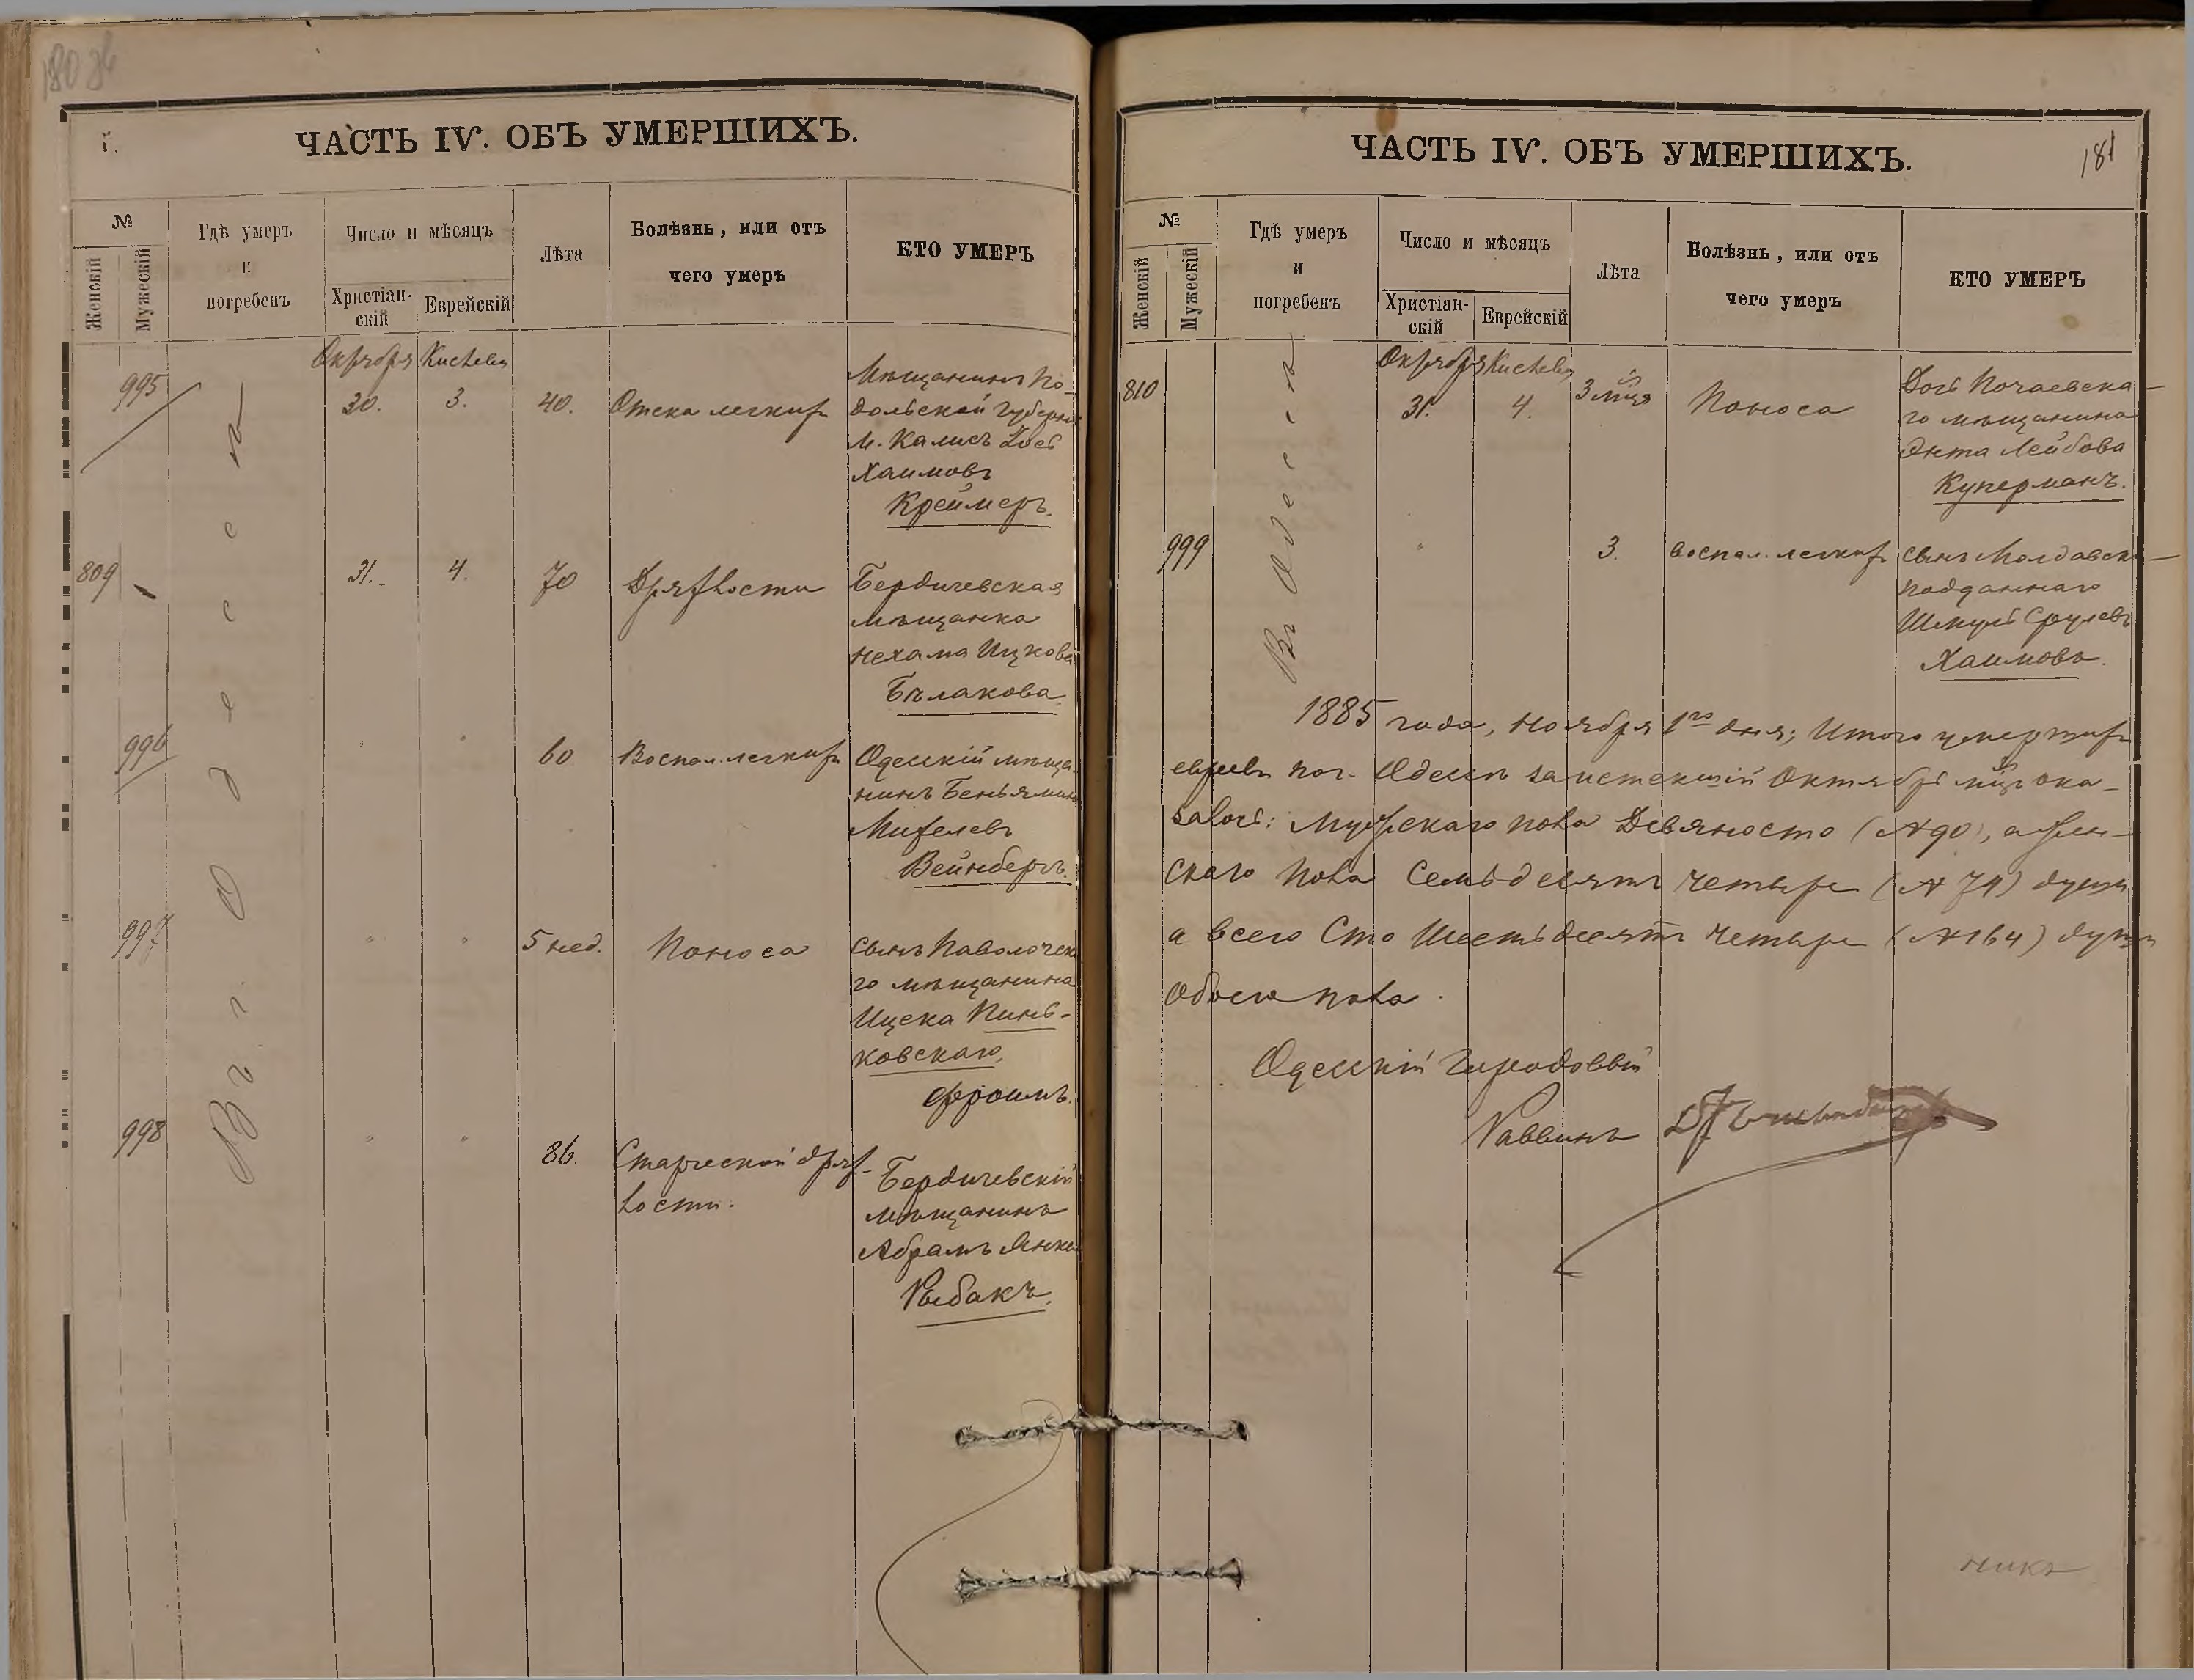 180 об
г.
ЧАСТЬ IV. ОБЪ УМЕРШИХЪ.
№
Женскій
Мужескій
Гдѣ умеръ
и
погребенъ
Число и мѣсяцъ
Христіан-
скій
Еврейскій
Лѣта
Болѣзнь, или отъ
чего умеръ
КТО УМЕРЪ
Въ г. Одессѣ
Октября Кислева
995 30. 3. 40. Отека легкихъ
Мѣщанинъ По-
дольской Губерніи
м. Калюсъ
Хаимовъ
Креймеръ.
809 31. 4. 70 Дряхлости
Бердичевская
мѣщанка
Нехама Ицкова
Бѣлакова.
996 " " 60 Воспал. легкихъ
Одесскій мѣща-
нинъ Беньяминъ
Михелевъ
Вейнбергъ.
997 " " 5 нед. Поноса
сынъ Паволочска
го мѣщанина
Ицека Пинь-
ковскаго,
Фроимъ.
998 " " 86. Старческой дрях-
лости.
Бердичевскій
мѣщанинъ
Абрамъ Янке
Рыбакъ.
181
ЧАСТЬ IV. ОБЪ УМЕРШИХЪ.
№
Женскій
Мужескій
Гдѣ умеръ
и
погребенъ
Число и мѣсяцъ
Христіан-
скій
Еврейскій
Лѣта
Болѣзнь, или отъ
чего умеръ
КТО УМЕРЪ
Въ Одессѣ
Октября Кислева
810 31. 4. 3 мѣсяца Поноса
Дочь Почаевска-
го мѣщанина
Энта Лейбова
Куперманъ.
999 " 3. Воспал. легкихъ
сынъ Молдавск.
подданнаго
Шмуль Срулевъ
Хаимовъ.
1885 года, Ноября 1го дня; Итого умершихъ
евреевъ по г. Одессѣ за истекшій Октябрь мѣсяцъ ока-
залось: Мужескаго пола Девяносто (№ 90), а жен-
скаго пола Семьдесятъ четыре (№ 74) души
а всего Сто Шестьдесятъ четыре (№ 164) души
обоего пола.
Одесскій Городовый
Раввинъ
никъ